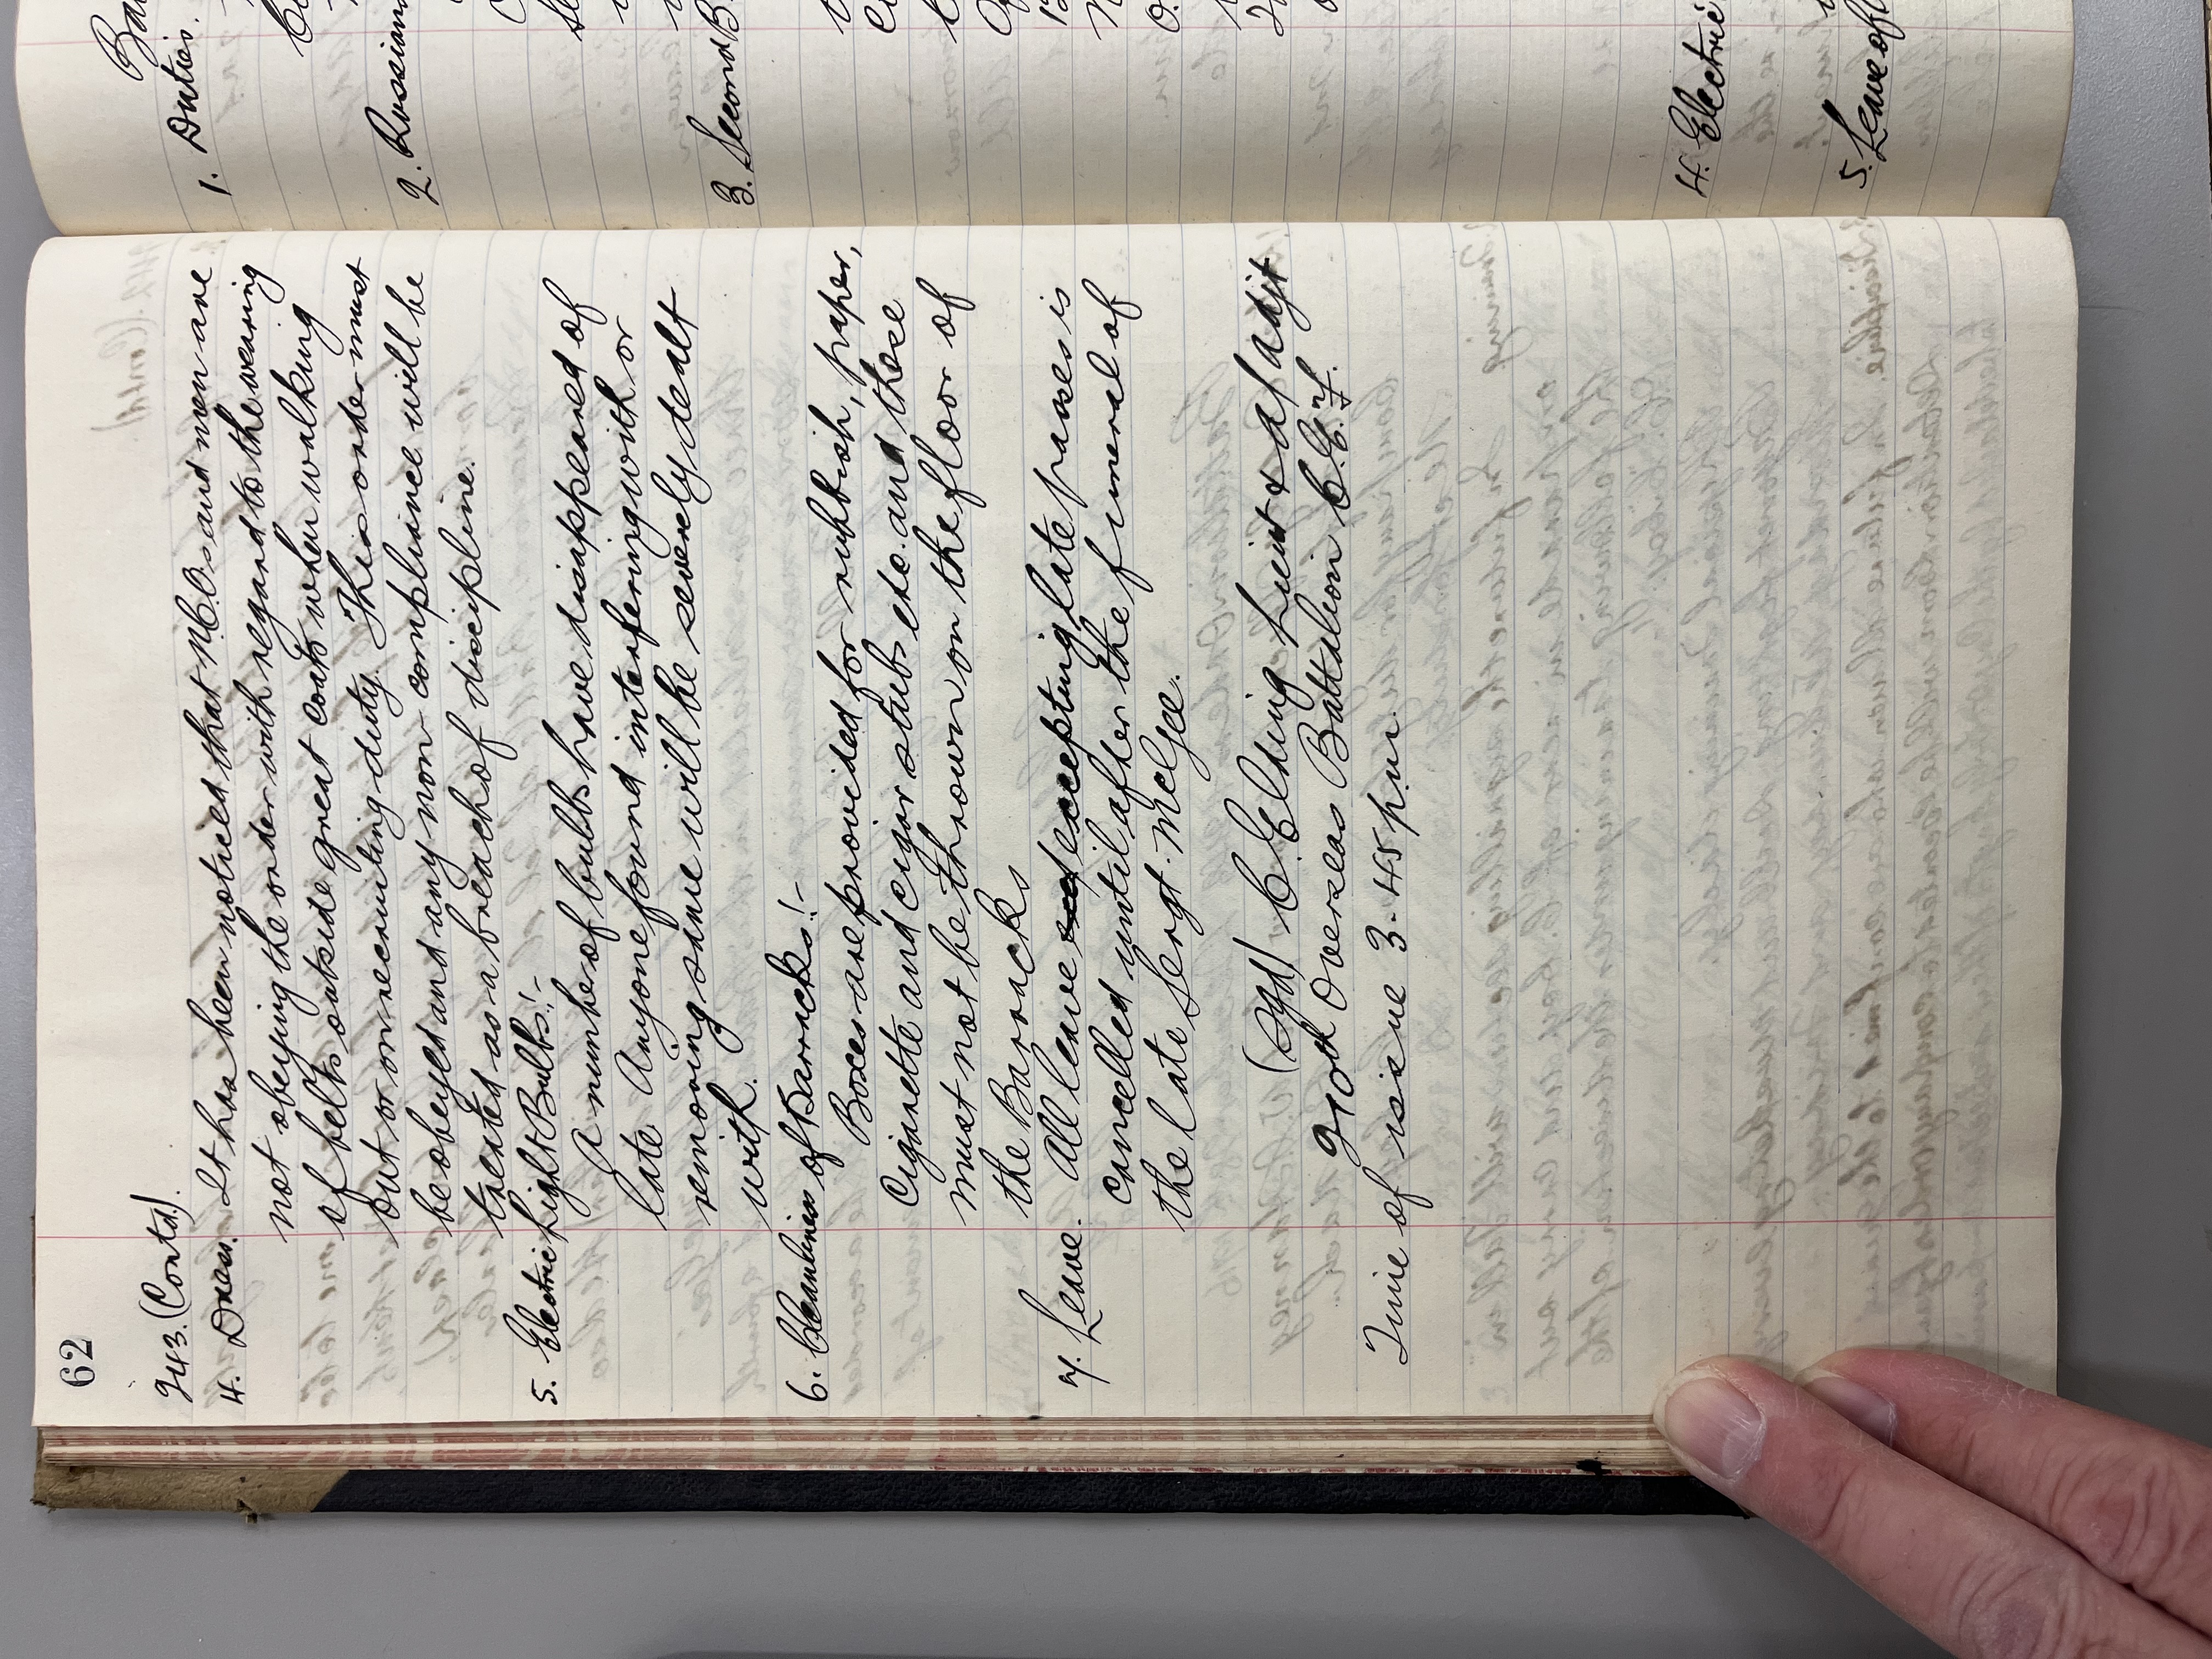 62
943. (Contd).
4. Dress. It has been noticed that N.C.Os and men are
not obeying the order with regard to the wearing
of belts outside great coats when walking
out or on recruiting duty. This order must
be obeyed and any non-compliance will be
treated as a breach of discipline.
5. Electric Light Bulbs:-
A number of bulbs have disappeared of
late Anyone found interfering with or
removing same will be severely dealt
with.
6. Cleanliness of Barracks:-
Boxes are provided for rubbish, paper,
Cigarette and cigar stubs etc. and these
must not be thrown on the floor of
the Barracks
7. Leave. All leave excepting late passes is
cancelled until after the funeral of
the late Sergt. McGee.
(Sgd) C. E. Lieut & a/adjt
Overseas Battalion C.E.F.
Time of issue 3.45 p.m.
1. Duties.
2. Russian
3. Second B.
4. Electric
5. Leave of